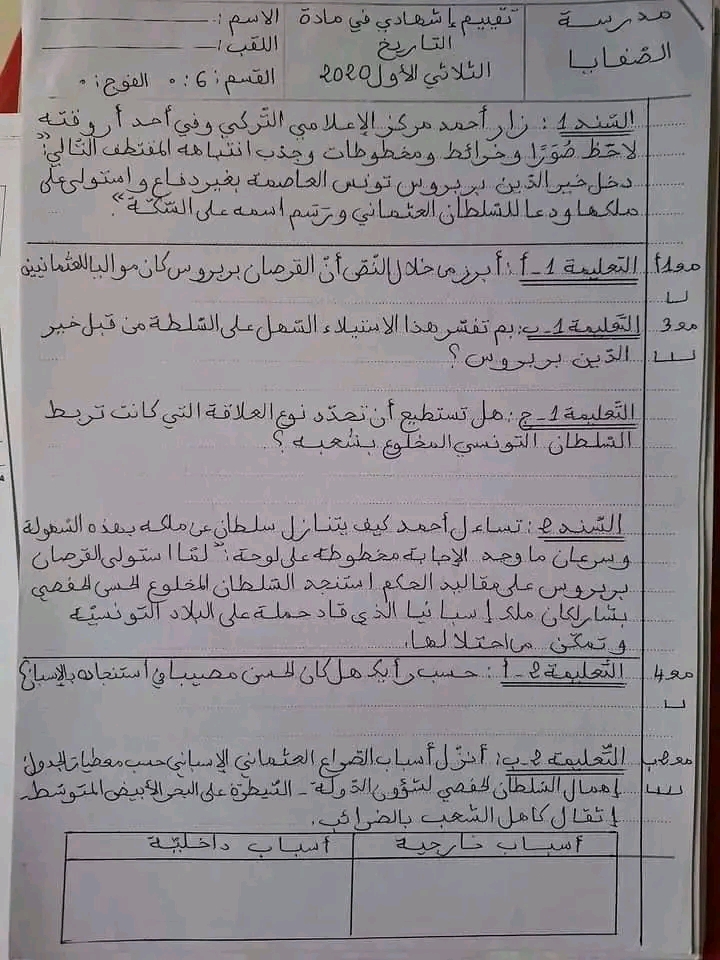 مدرسة
الصّفايا
تقييم إشهادي في مادة
التاريخ
الثلاثي الأول 2020
الاسم :
اللقب :
القسم : 6 الفوج :
السّند 1 : زار أحمد مركز الإعلامي التّركي وفي أحد أروقته
لاحظ صُوَرًا وخرائط ومخطوطات وجذب انتباهه المقتطف التّالي: "
دخل خير الدّين بربروس تونس العاصمة بغير دفاع واستولى على
ملكها ودعا للسّلطان العثماني ورسم اسمه على السّكّة".
مع1أ
التّعليمة 1 - أ : أبرز من خلال النّصّ أنّ القرصان بربروس كان مواليا للعثمانيين
مع3
التّعليمة 1 - ب : بم تفسّر هذا الاستيلاء السّهل على السّلطة من قبل خير
الدّين بربروس ؟
التّعليمة 1 - ج : هل تستطيع أن تحدّد نوع العلاقة التي كانت تربط
السّلطان التونسي المخلوع بشعبه ؟
السّند 2 : تساءل أحمد كيف يتنازل سلطان عن ملكه بهذه السّهولة
وسرعان ما وجد الإجابة مخطوطة على لوحة : "لمّا استولى القرصان
بربروس على مقاليد الحكم استنجد السّلطان المخلوع الحسن الحفصي
بشارلكان ملك إسبانيا الذي قاد حملة على البلاد التونسيّة
وتمكّن من احتلالها.
مع4
التّعليمة 2 - أ : حسب رأيك هل كان الحسن مصيبا في استنجاده بالإسبان؟
مع2ب
التّعليمة 2 - ب : أنزّل أسباب الصّراع العثماني الإسباني حسب معطيات الجدول:
إهمال السّلطان الحفصي لشؤون الدّولة - السّيطرة على البحر الأبيض المتوسّط -
إثقال كاهل الشّعب بالضّرائب.
أسباب خارجية
أسباب داخليّة